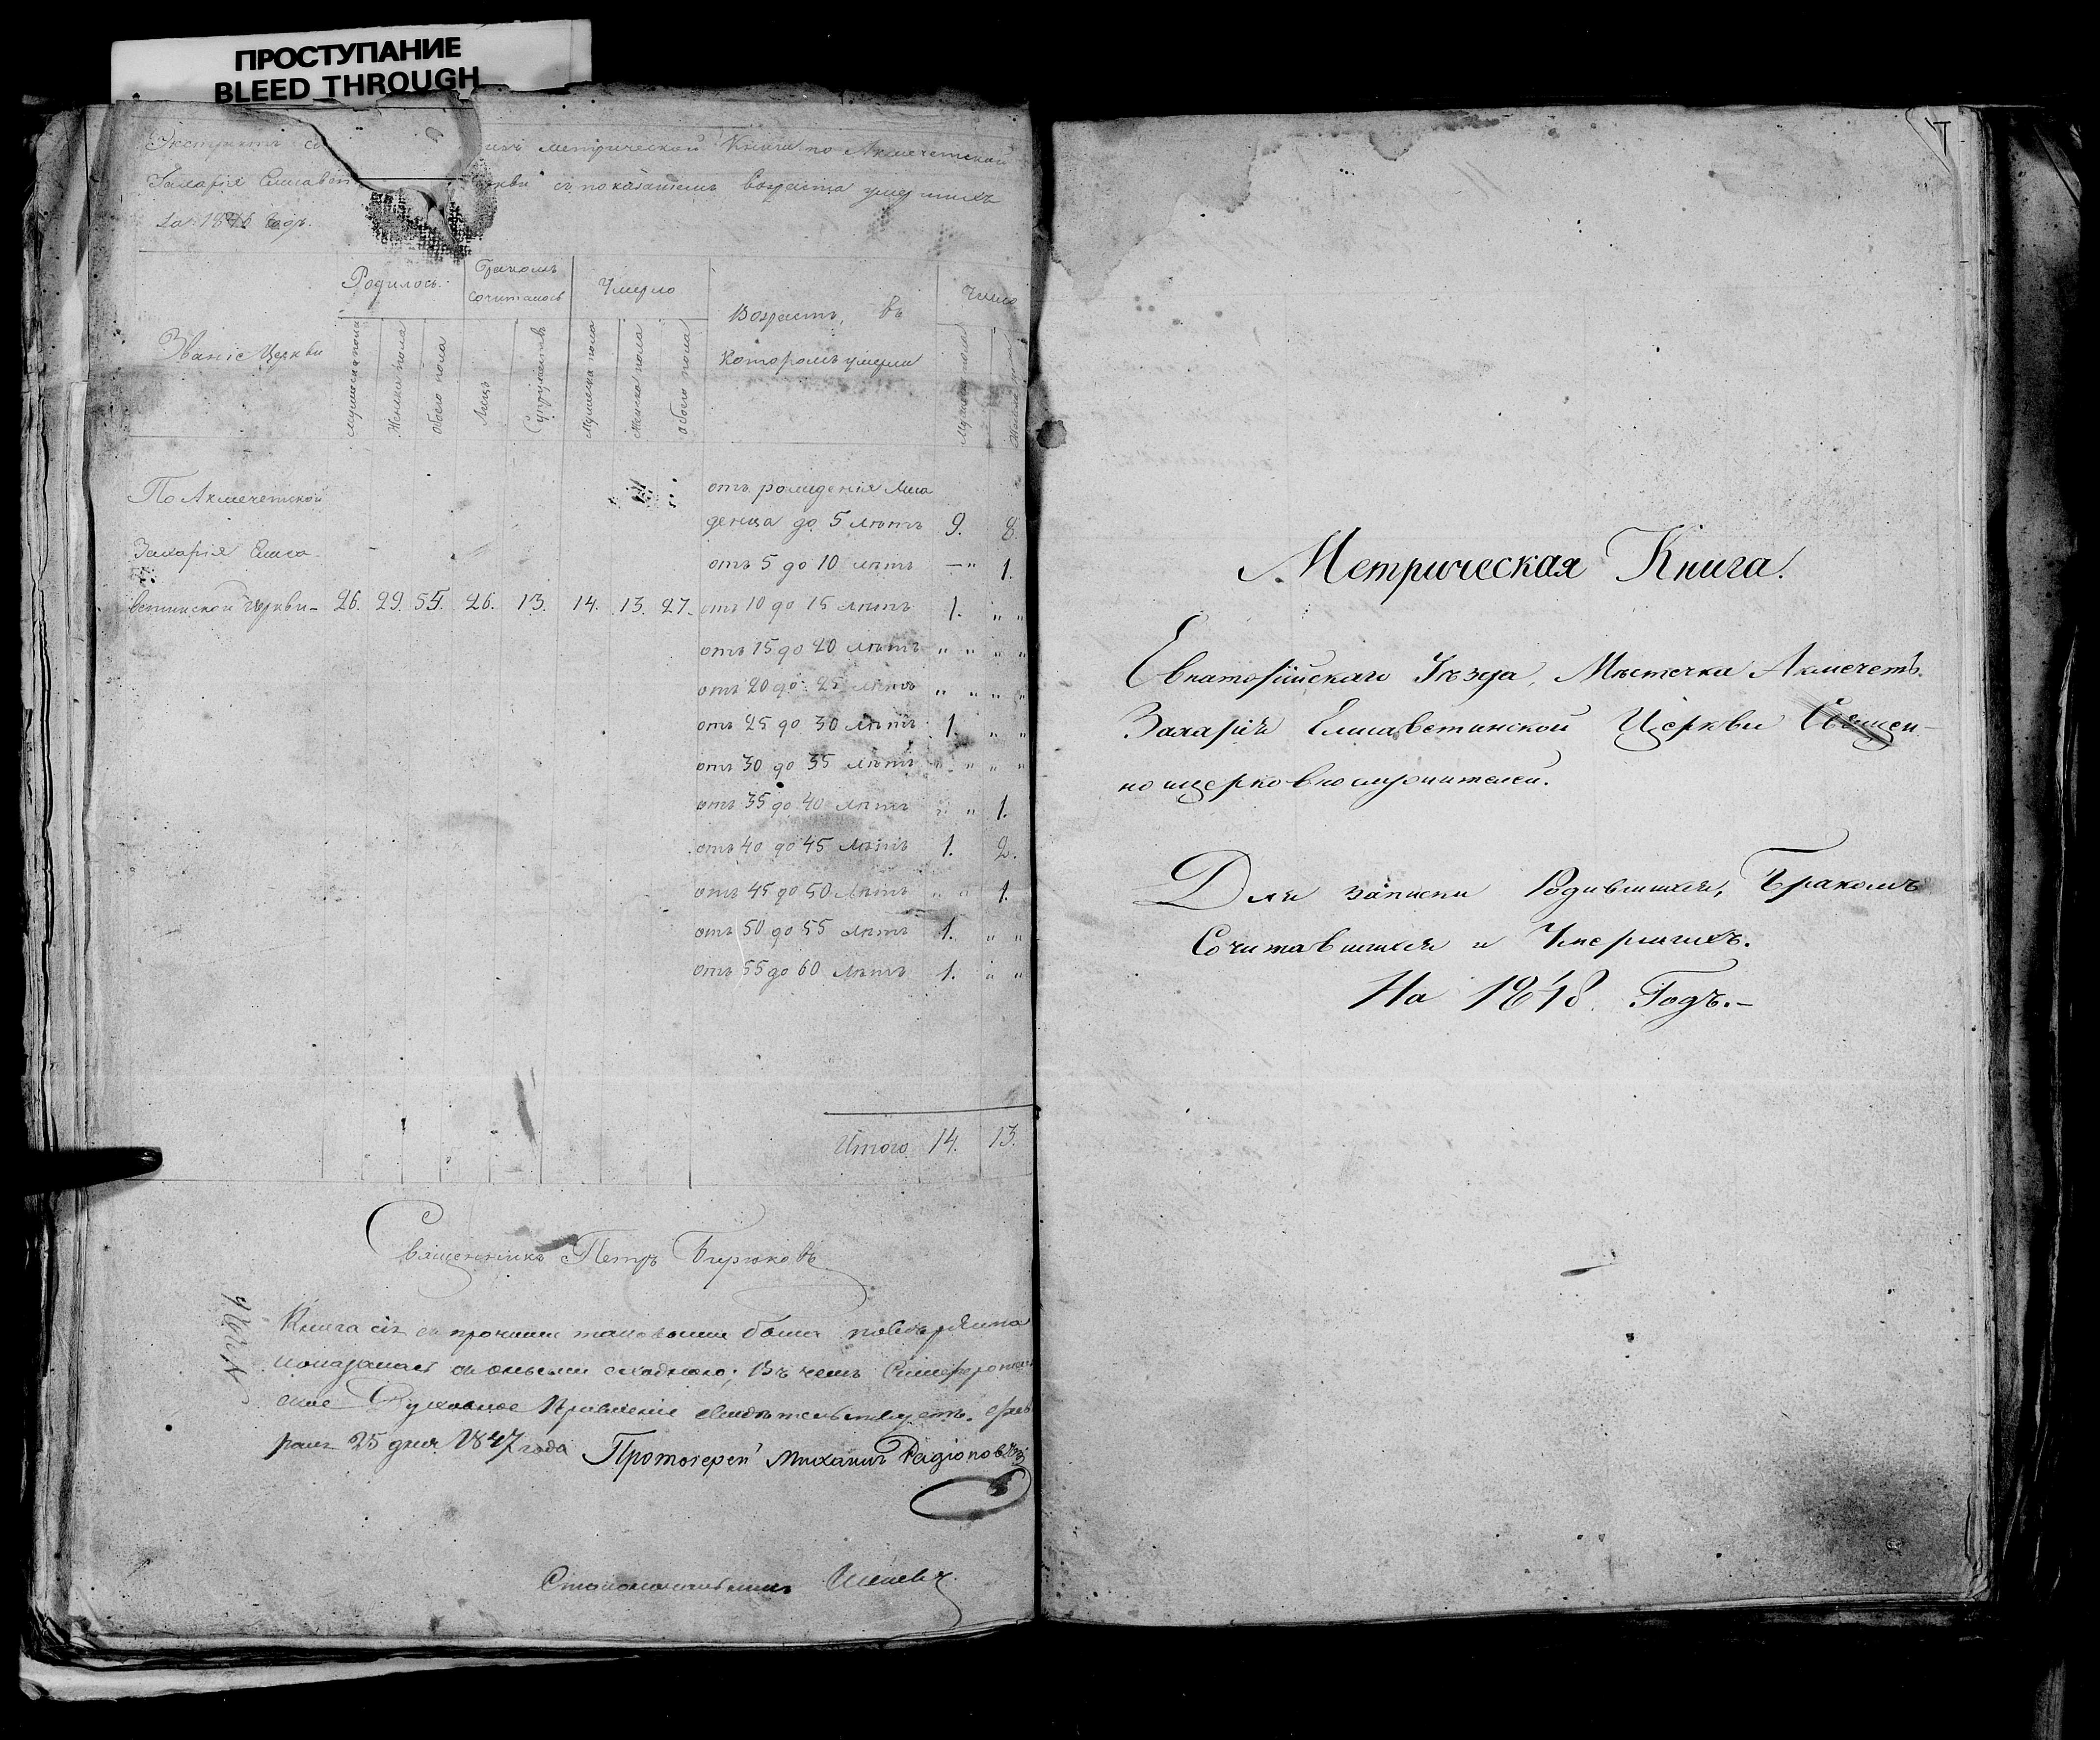 ПРОСТУПАНИЕ
BLEED THROUGH
Экстрактъ метрической Книги по Акмечетской
Захарія Елисавет съ показаніемъ возраста умершихъ
за 1846 годъ.
Званіе Церкви
Родилось.
мужеска пола
Женска пола
обоего пола
Бракомъ
сочиталось
Лицъ
Супружествъ
Умерло
Мужеска пола
Женска пола
обоего пола
Возрастъ, въ
которомъ умерли
Число
Мужеска пола
По Акмечетской
Захарія Елиса-
ветинской Церкви- 26. 29. 55. 26. 13. 14. 13. 27.
отъ рожденія Мла
денца до 5 лѣтъ 9. 8.
отъ 5 до 10 лѣтъ —„ 1.
отъ 10 до 15 лѣтъ 1. „ „
отъ 15 до 20 лѣтъ „ „ „ „
отъ 20 до 25 лѣтъ „ „ „ „
отъ 25 до 30 лѣтъ 1. „ „
отъ 30 до 35 лѣтъ „ „ „ „
отъ 35 до 40 лѣтъ „ „ 1.
отъ 40 до 45 лѣтъ 1. 2.
отъ 45 до 50 лѣтъ „ „ 1.
отъ 50 до 55 лѣтъ 1. „ „
отъ 55 до 60 лѣтъ 1. „ „
Итого 14. 13.
Священникъ Петръ Бирюковъ
Книга сія съ прочими таковыми была повѣряема
и оказалась съ оными сходною; Въ чемъ Симферополь
ское Духовное Правленіе свидѣтельствуетъ. Фев
раля 25 дня 1847 года Протоіерей Михаилъ Радіоновъ
Столоначальникъ
Метрическая Книга.
Евпаторійскаго Уѣзда, Мѣстечка Акмечетъ.
Захарія Елисаветинской Церкви Священ-
ноцерковнослужителей.
Для записки Родившихся, Бракомъ
Сочитавшихся и Умершихъ.
На 1848 Годъ.-